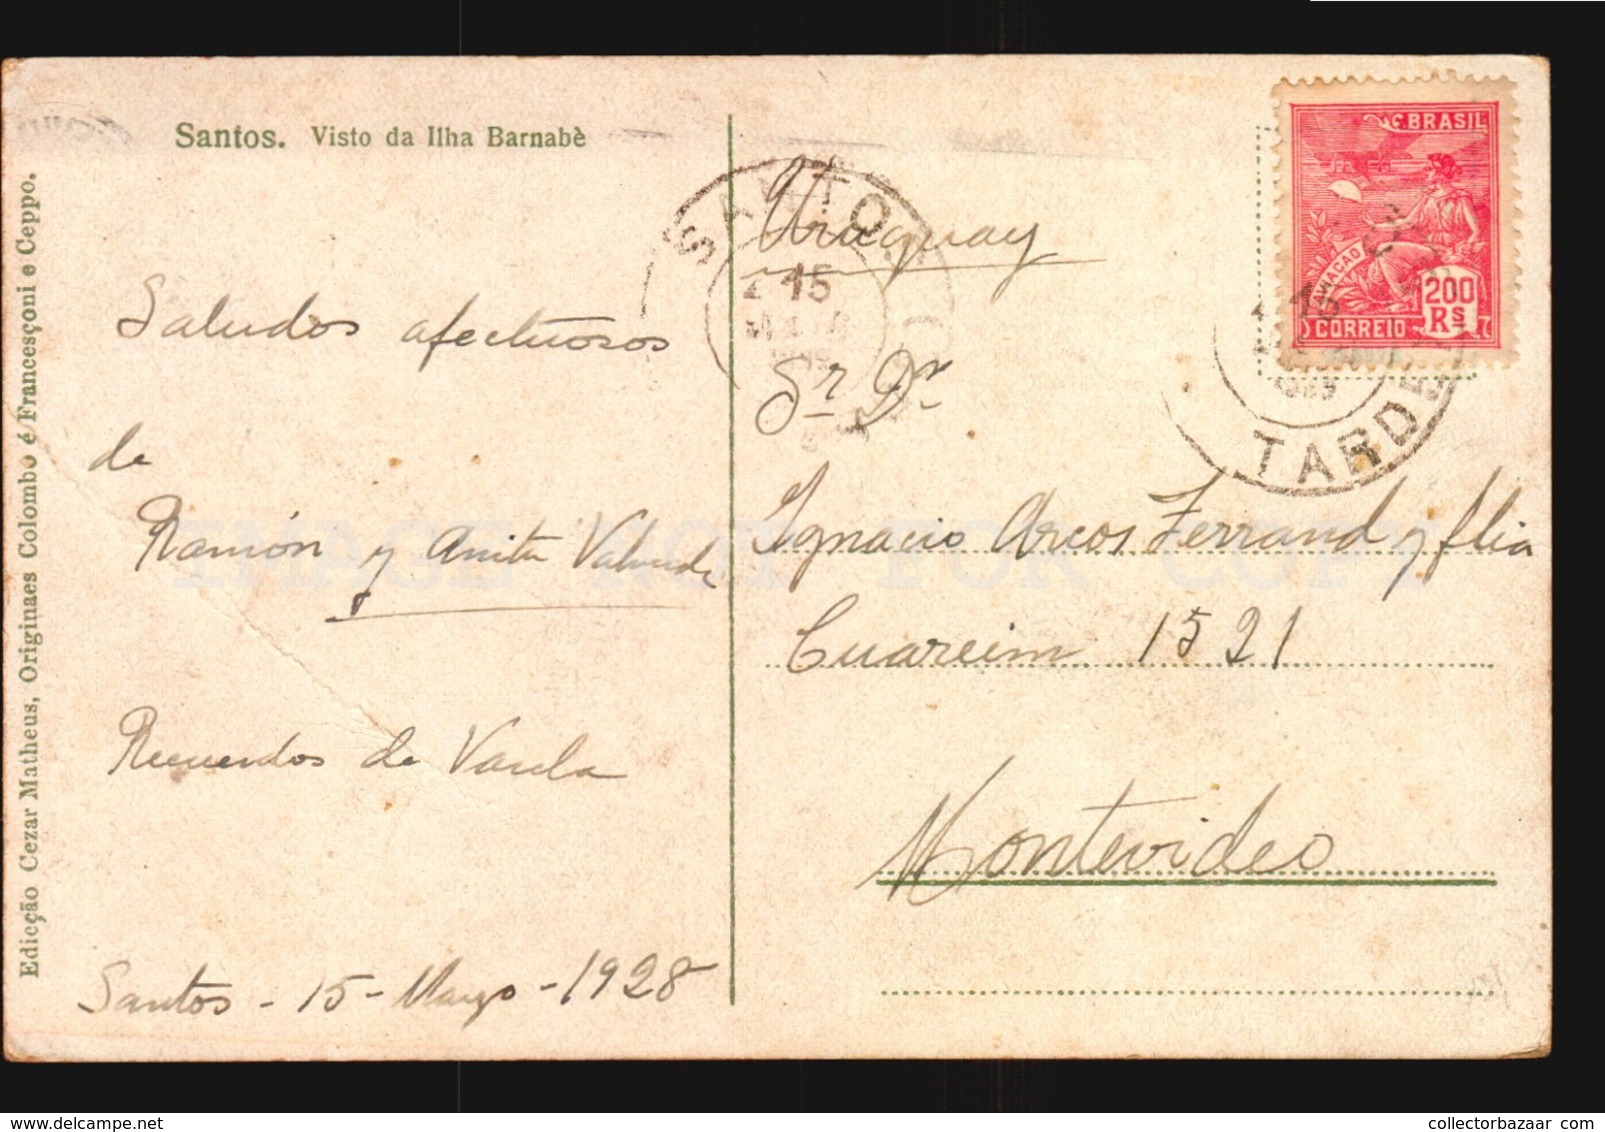 Santos. Visto da Ilha Barnabè
Edicção Cezar Matheus, Originaes Colombo é Francesçoni e Ceppo.
Saludos afectuosos
de
Ramón y Anita Valverde
Recuerdos de Varela
Santos - 15 - Marzo - 1928
SANTO
15
Uruguay
Sr Dr
Ignacio Arcos Ferrand y flia
Cuareim 1521
Montevideo
BRASIL
AVIAÇÃO
200
Rs
CORREIO
15
TARDE
IMAGE NOT FOR COPY
collectorbazaar.com